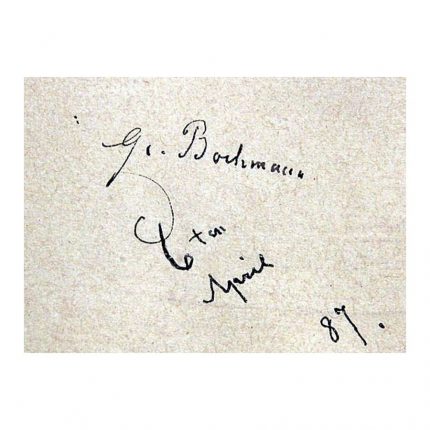 G. v. Bochmann
6ten
April
87.